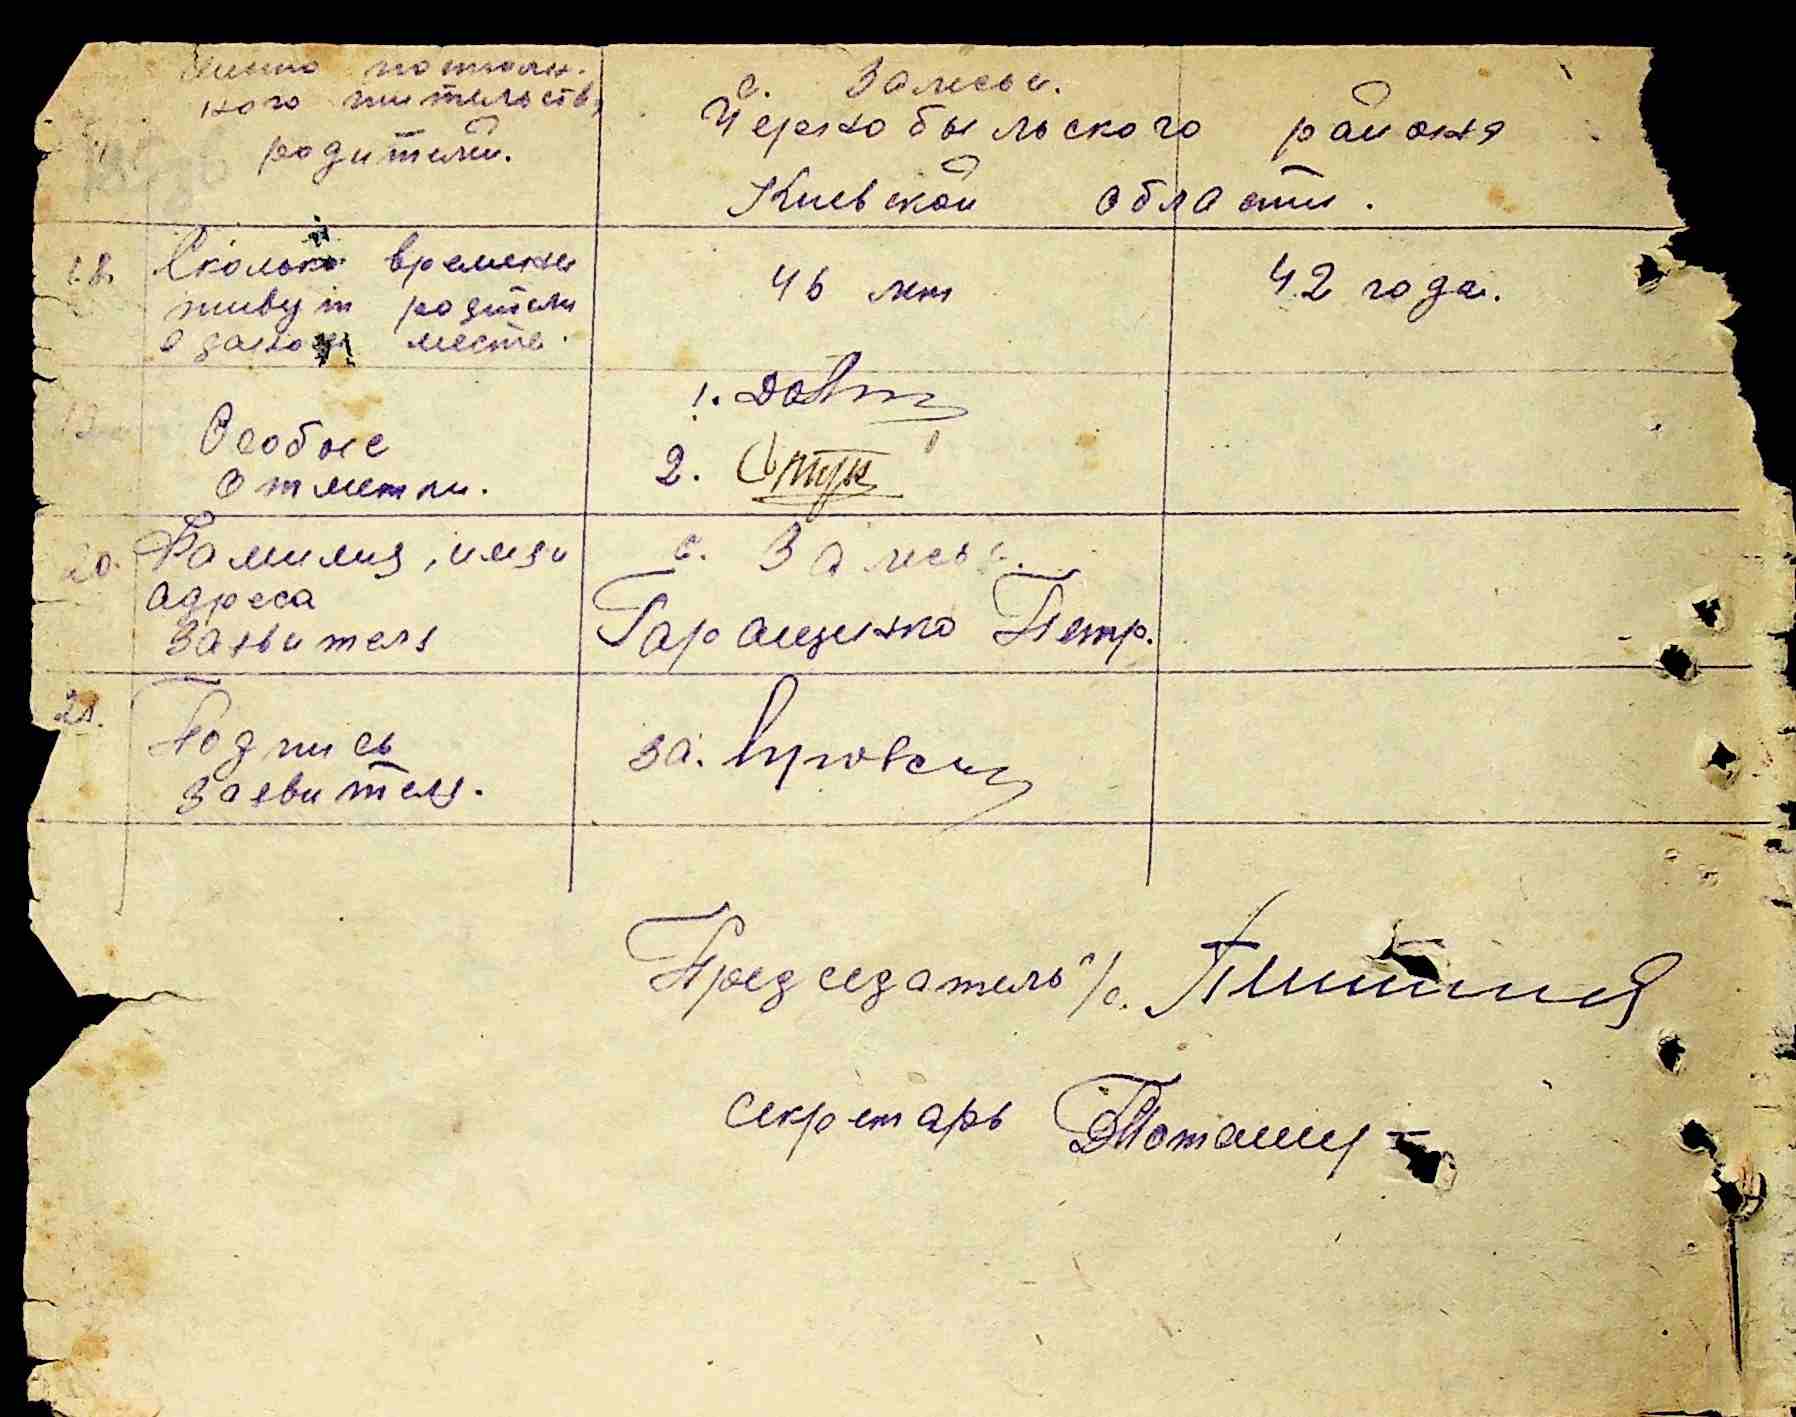 место постоян-
ного жительств.
родителей.
с. Залесье.
Чернобыльского района
Киевской области.
18. Сколько времени
живут родители
в данном месте.
46 лет
42 года.
19.
Особые
отметки.
1.
2.
20. Фамилия, имя и
адреса
заявителя
с. Залесье.
Гаращенко Петр.
21.
Подпись
заявителя.
за.
Председатель с/с.
Секретарь